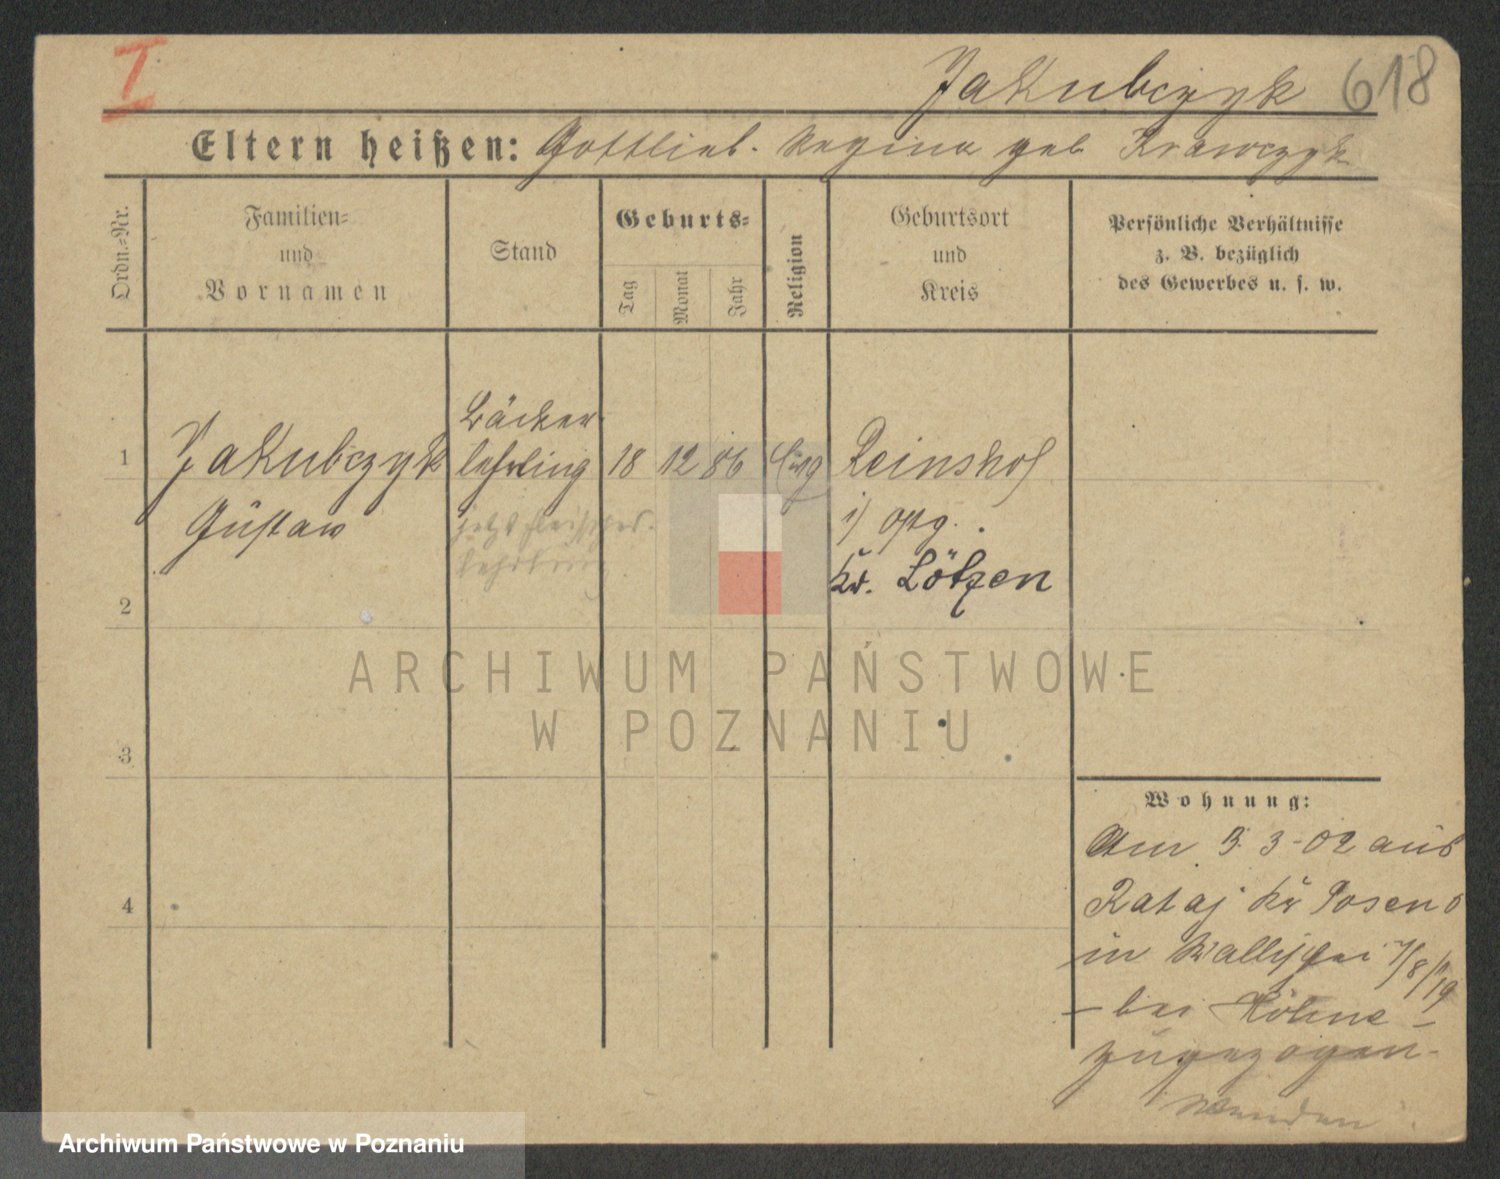 I
Jakubczyk 618
Eltern heißen: Gottlieb. Regina geb Krawczyk
Ordn.=Nr.
Familien=
und
Vornamen
Stand
Geburts=
Tag
Monat
Jahr
Religion
Geburtsort
und
Kreis
Persönliche Verhältnisse
z. B. bezüglich
des Gewerbes u. s. w.
1
Jakubczyk
Gustaw
Bäcker
lehrling
jetzt Fleischer
lehrling
18 12 86 Evg
Reinshof
i/ Opg.
Kr. Lötzen
2
3
4
ARCHIWUM PAŃSTWOWE
W POZNANIU
Wohnung:
Am 3. 3-02 aus
Rataj Kr Posen O
in Wallischei 7/8/19
- bei Köhne -
zugezogen.
Wenden
Archiwum Państwowe w Poznaniu